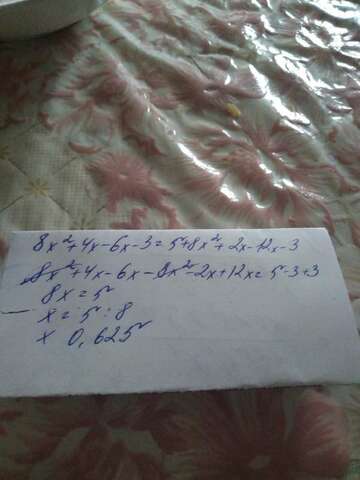 8x²+4x-6x-3=5+8x²+2x-12x-3
8x²+4x-6x-8x²-2x+12x=5-3+3
8x=5
x=5:8
x 0,625